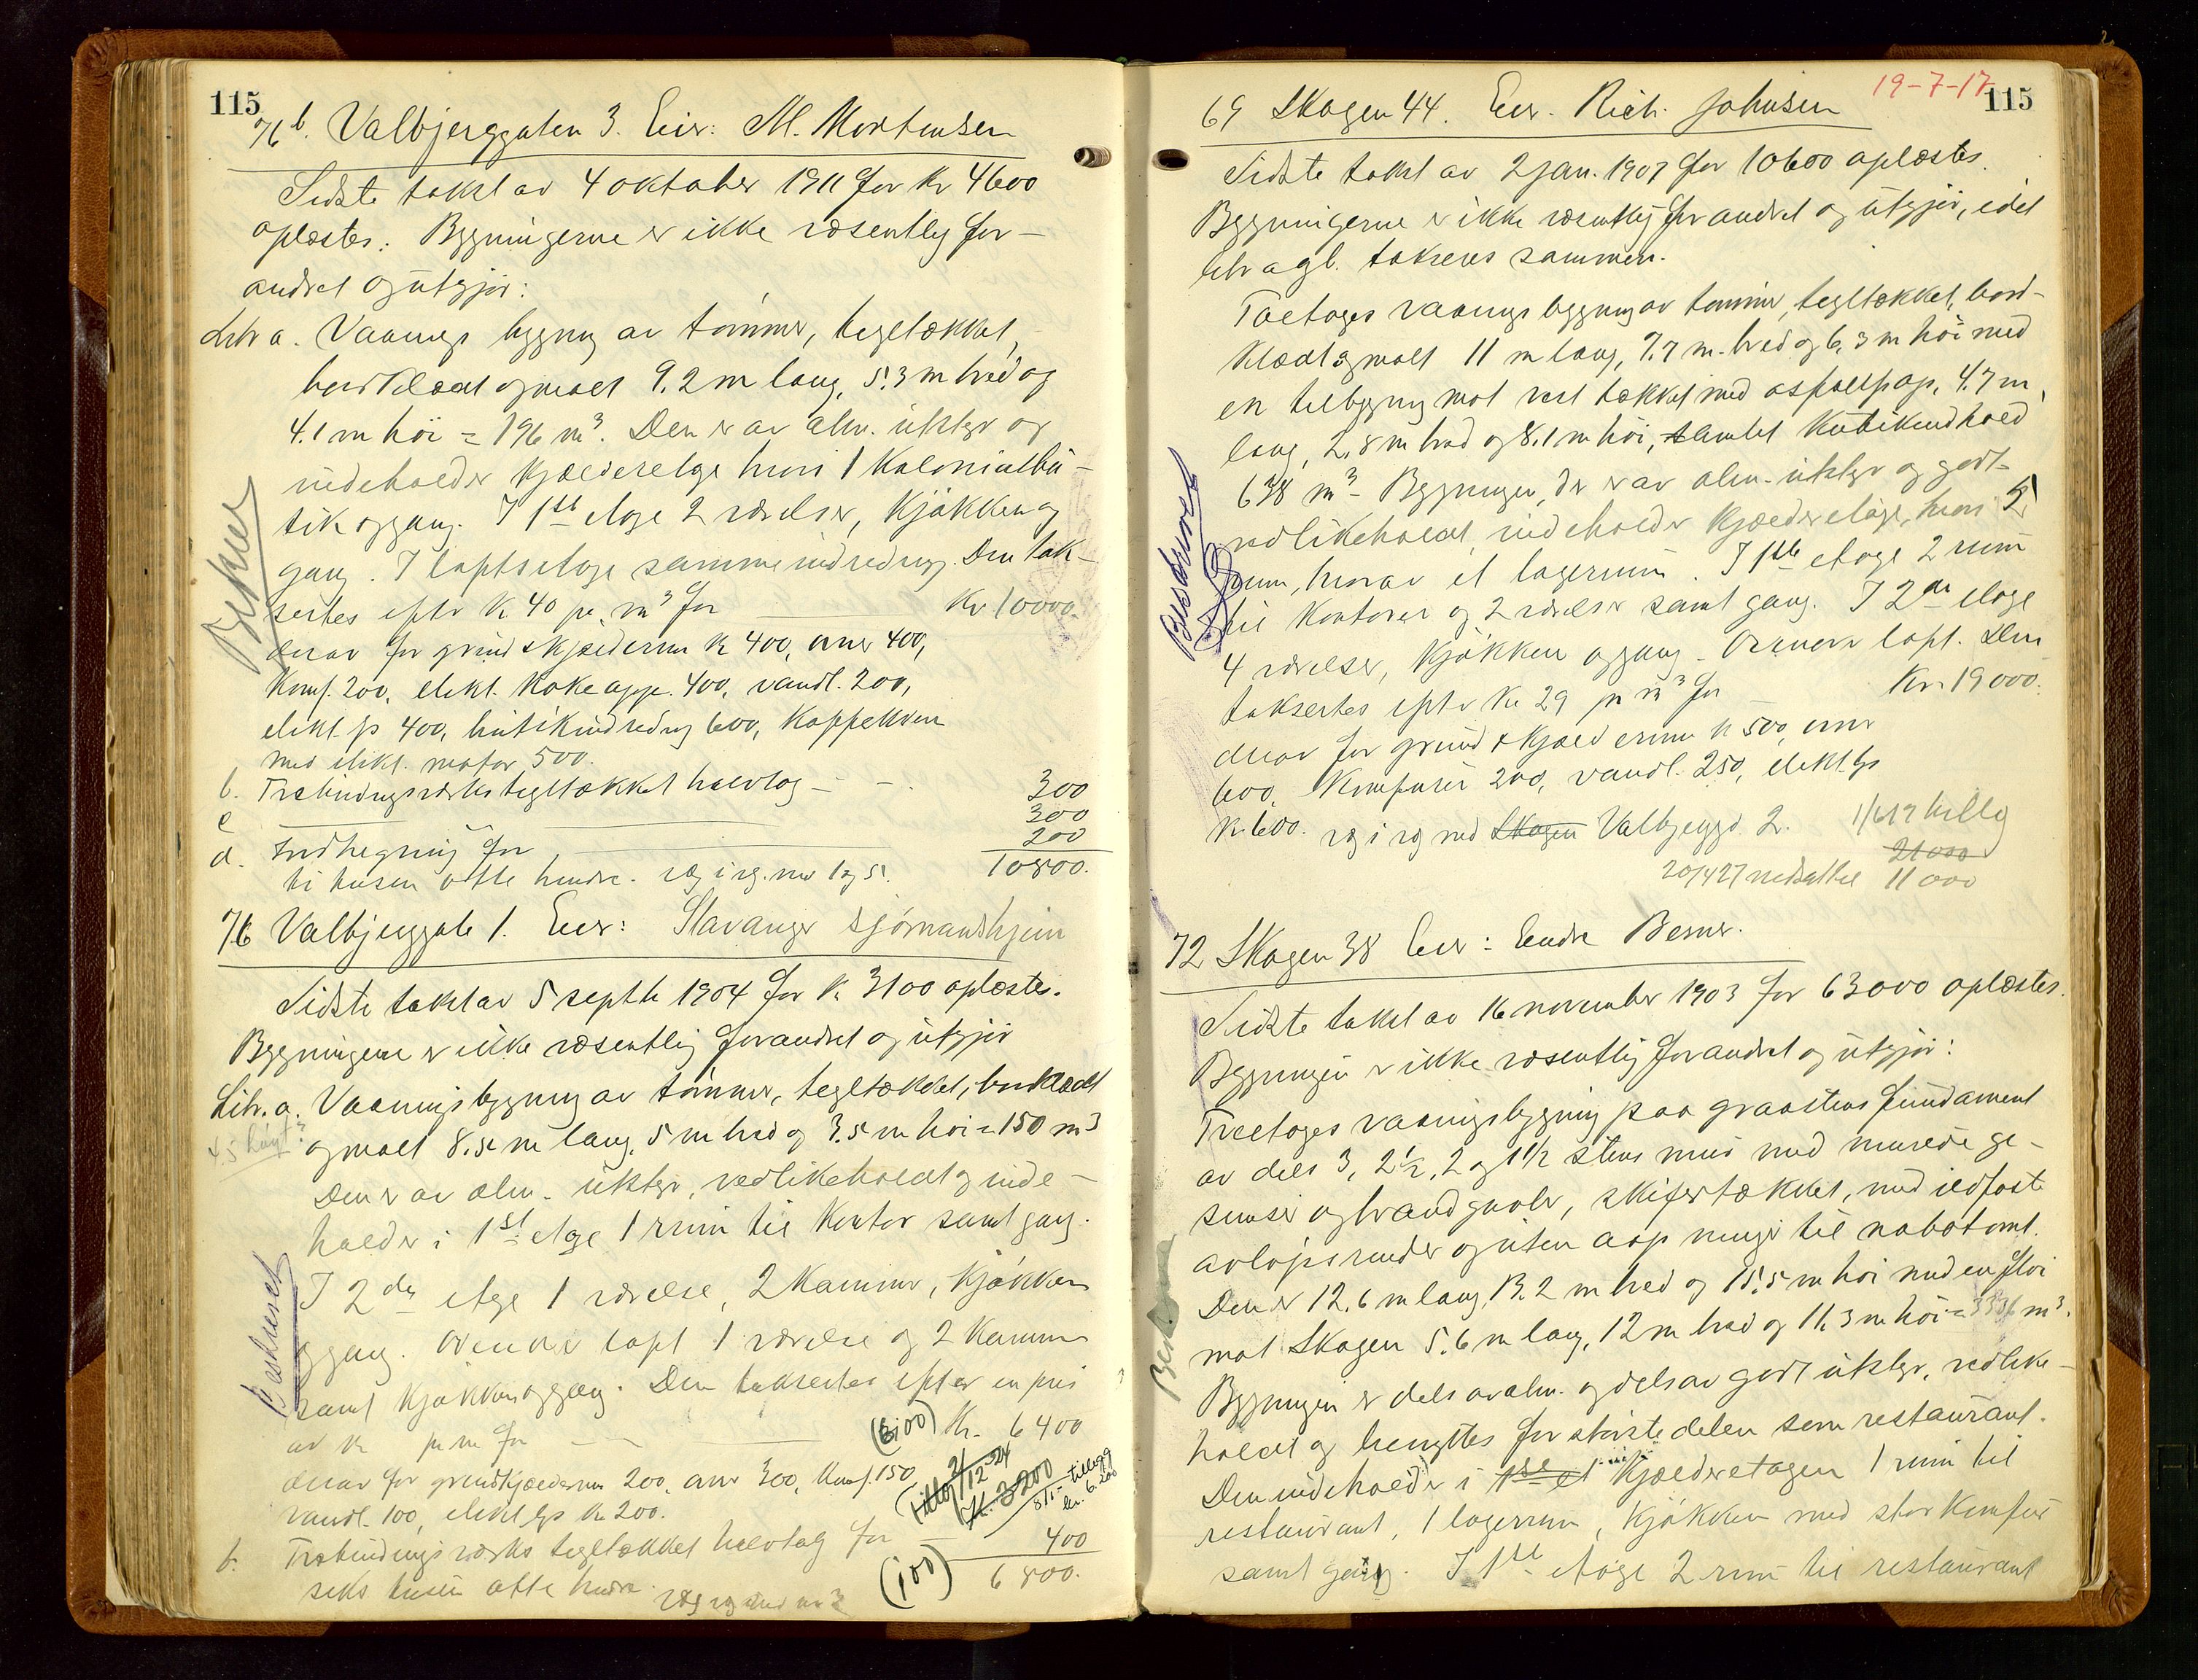 115
76b. Valbjerggaten 3. Eier: M. Mortensen
Sidste takst av 4 oktober 1911 for kr 4600
oplæstes. Bygningerne er ikke væsentlig for-
andret og utgjør:
Litr a. Vaanings bygning av tømmer, tegltækket,
bordklædt og malt 9.2 m lang, 5.3 m bred og
4.1 m høi = 196 m³. Den er av alm. utstyr og
indeholder kjælderetage hvori 1 kolonialbu-
tik og gang. I 1ste etage 2 værelser, kjøkken og
gang. I loftsetage samme indredning. Den tak-
sertes efter kr 40 pr. m³ for Kr 10000.
derav for grund & kjælderrum kr 400, ovner 400,
komf. 200, elekt. kokeapp. 400, vandl. 200,
elekt. lys 400, butikindredning 600, kaffekvern
med elekt. motor 500.
b. Træbindingsværks tegltækket halvtag 300
c 300
d. Indhegning for 200
10800.
ti tusen otte hundre. væg i væg med 1 og 5.
76 Valbjerggate 1. Eier: Stavanger sjømandshjem
Sidste takst av 5 septbr 1904 for kr 3100 oplæstes.
Bygningerne er ikke væsentlig forandret og utgjør
Litr. a. Vaaningsbygning av tømmer, tegltækket, bordklædt
og malt 8.5 m lang, 5 m bred og 3.5 m høi = 150 m³
Den er av alm. utstyr, vedlikeholdt og inde-
holder i 1st etage 1 rum til kontor samt gang.
I 2den etage 1 værelse, 2 kammer, kjøkken
og gang. Ovenover loft 1 værelse og 2 kammer
samt kjøkken og gang. Den taksertes efter en pris
av kr pr m for Kr. 6400
derav for grund kjælderrum 200, ovner 300, komf. 150
vandl. 100, elekt lys kr 200.
b. Træbindingsværks tegltækket halvtag for 400
6800.
seks tusen otte hundre. væg i væg med nr 3
19-7-17
115
69 Skagen 44. Eier. Rich. Johnsen
Sidste takst av 2 jan. 1907 for 10600 oplæstes.
Bygningerne er ikke væsentlig forandret og utgjør, idet
litr a og b. takseres sammen.
Toetages vaanings bygning av tømmer, tegltækket, bord-
klædt og malt 11 m lang, 7.7 m. bred og 6.3 m høi med
en tilbygning mot vest tækket med asfaltpap, 4.7 m
lang, 2.8 m bred og 8.1 m høi, samlet kubikindhold
638 m³. Bygningen, der er av alm. utstyr og godt
vedlikeholdt, indeholder kjælderetage, hvori 5
rum, hvorav et lagerrum. I 1ste etage 2 rum
til kontorer og 2 værelser samt gang. I 2den etage
4 værelser, kjøkken og gang. Ovenover loft. Den
taksertes efter kr 29 pr m³ for Kr. 19000.
derav for grund & kjælderrum kr 500, ovner
600, komfurer 200, vandl. 250, elekt. lys
kr. 600. væg i væg med Skagen Valbjerggd 2.
21000
20/4 27 nedsat til 11000
72 Skagen 38 Eier: Endre Berner.
Sidste takst av 16 november 1903 for 63000 oplæstes.
Bygningen er ikke væsentlig forandret og utgjør:
Treetages vaaningsbygning paa graastens fundament
av dels 3, 2½, 2 og 1½ stens mur med murede ge-
simser og brandgavler, skifertækket, med ildfaste
avløpsrender og uten aapninger til nabotomt.
Den er 12.6 m lang, 13.2 m bred og 15.5 m høi med en fløi
mot Skagen 5.6 m lang, 12 m bred og 11.3 m høi = 3336 m³.
Bygningen er dels av alm. og dels av godt utstyr, vedlike-
holdt og benyttes for største delen som restaurant.
Den indeholder i 1ste et kjælderetagen 1 rum til
restaurant, 1 lagerrum, kjøkken med stor komfur
samt gang. I 1ste etage 2 rum til restaurant